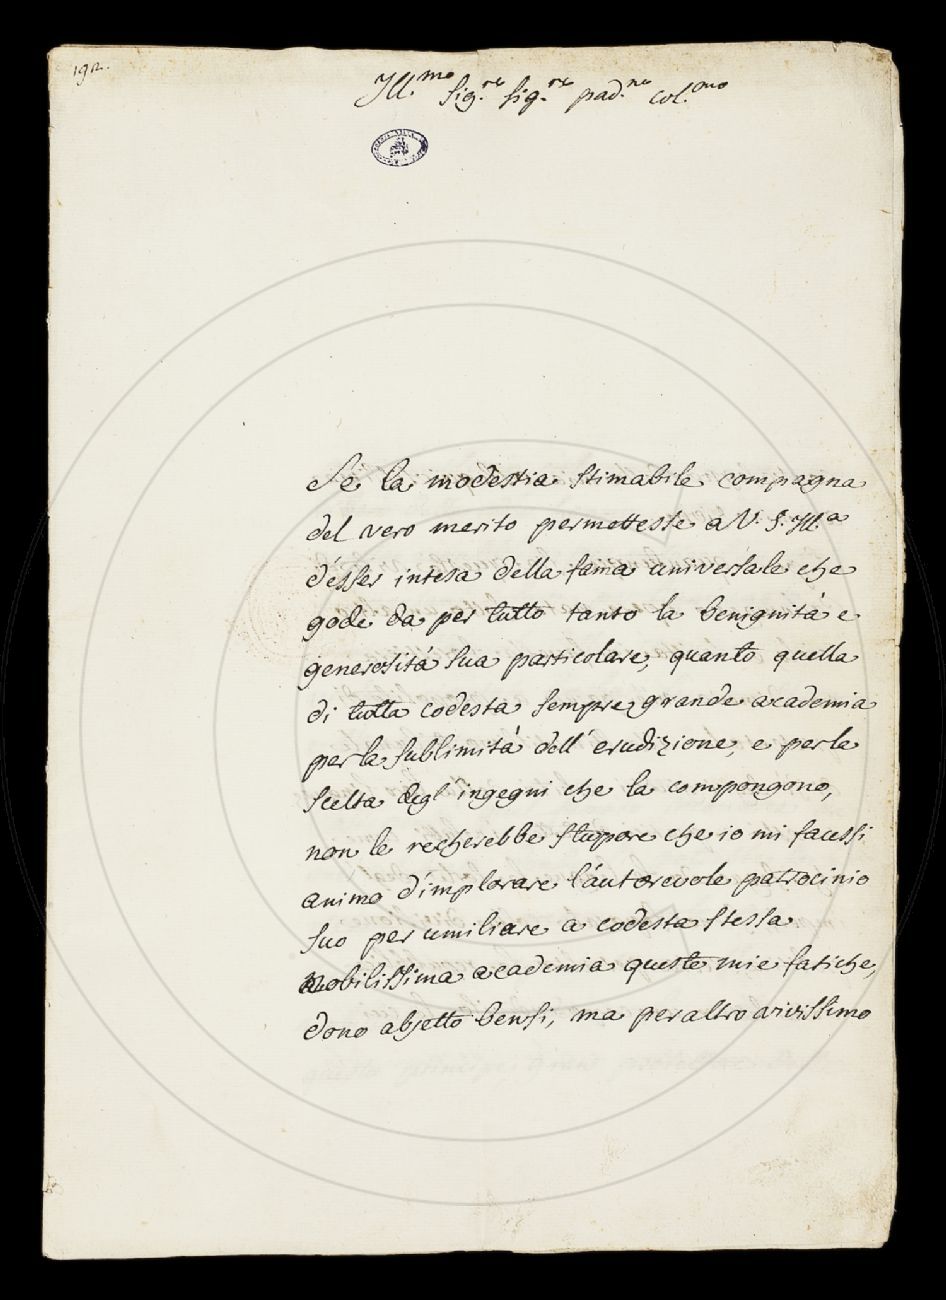 192.
Ill.mo sig.re sig.re pad.ne col.mo
Se la modestia stimabile compagna
del vero merito permettesse a V. S. Ill.a
d'esser intesa della fama universale che
gode da per tutto tanto la benignità e
generosità sua particolare, quanto quella
di tutta codesta sempre grande academia
per la sublimità dell' erudizione, e per la
scelta degl' ingegni che la compongono,
non le recherebbe stupore che io mi facessi
animo d'implorare l'autorevole patrocinio
suo per umiliare a codesta stessa
nobilissima academia queste mie fatiche,
dono abjetto bensi, ma per altro